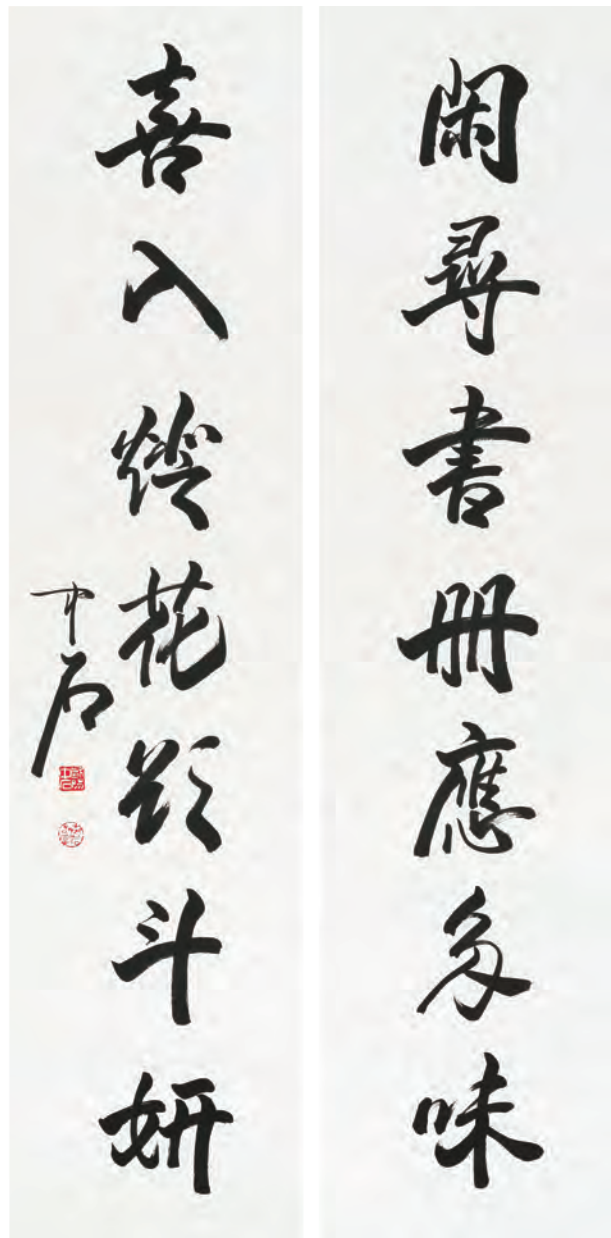 閑尋書册應多味
喜入燈花欲斗妍
中石